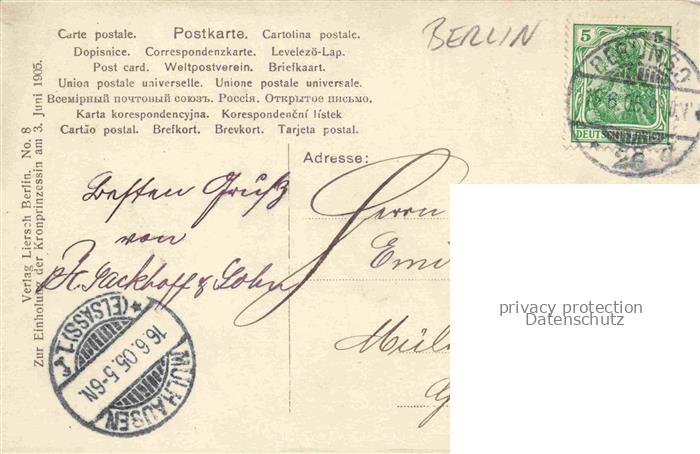 Carte postale. Postkarte. Cartolina postale.
Dopisnice. Correspondenzkarte. Levelező-Lap.
Post card. Weltpostverein. Briefkaart.
Union postale universelle. Unione postale universale.
Всемірный почтовый союзъ. Россія. Открытое письмо.
Karta korespondencyjna. Korespondenční lístek
Cartão postal. Brefkort. Brevkort. Tarjeta postal.
BERLIN
5 5
DEUTSCHES REICH
BERLIN S.O.
26 d
Verlag Liersch Berlin. No. 8
Zur Einholung der Kronprinzessin am 3. Juni 1905.
Adresse:
Besten Gruß
von
& Sohn
Herrn
Emi
Mül
MÜLHAUSEN
16.6.05. 5-6N.
*(ELSASS)1.
privacy protection
Datenschutz